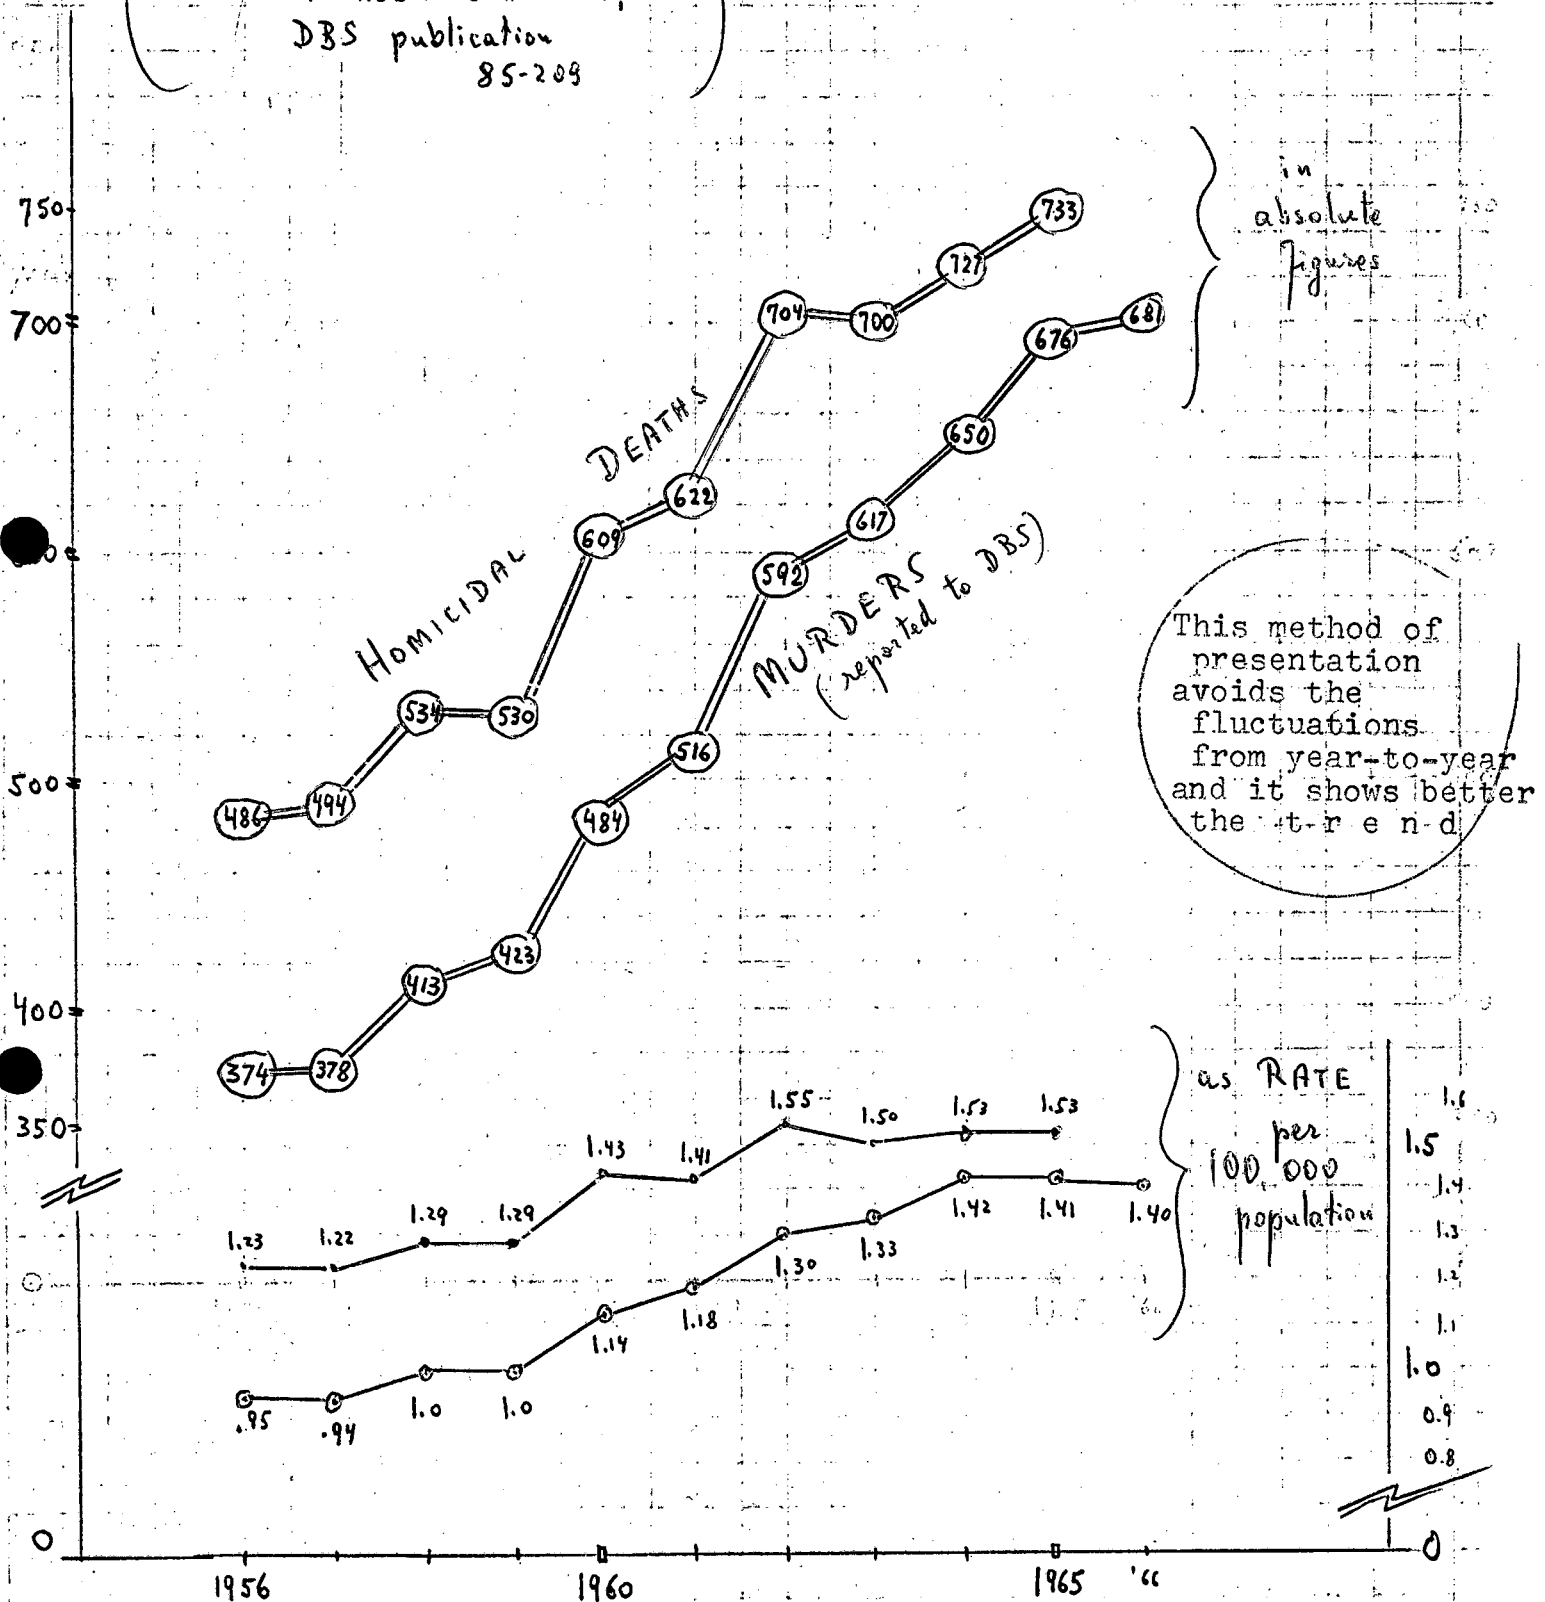 DBS publication
85-209
750
700
500
400
350
0
in
absolute
figures
HOMICIDAL DEATHS
486
494
534
530
609
622
704
700
727
733
MURDERS
(reported to DBS)
374
378
413
423
484
516
592
617
650
676
681
This method of
presentation
avoids the
fluctuations
from year-to-year
and it shows better
the t-r e n d
as RATE
per
100,000
population
1.23
1.22
1.29
1.29
1.43
1.41
1.55
1.50
1.53
1.53
.95
.94
1.0
1.0
1.14
1.18
1.30
1.33
1.42
1.41
1.40
1.6
1.5
1.4
1.3
1.2
1.1
1.0
0.9
0.8
0
1956
1960
1965
'66